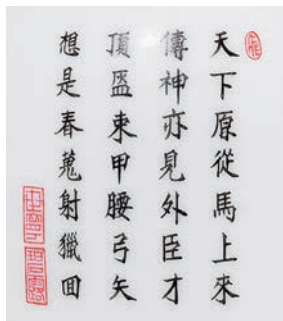 天下原從馬上來
傳神亦見外臣才
頂盔束甲腰弓矢
想是春蒐射獵回